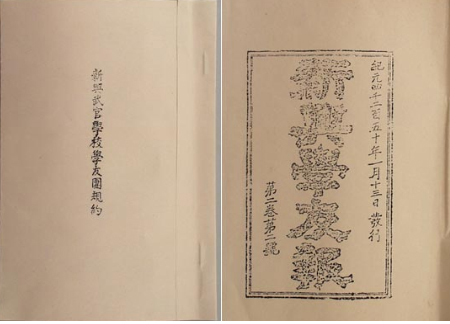 新興武官學校學友團規約
紀元四千二百五十年一月十三日發行
新興學友報
第二卷第二號